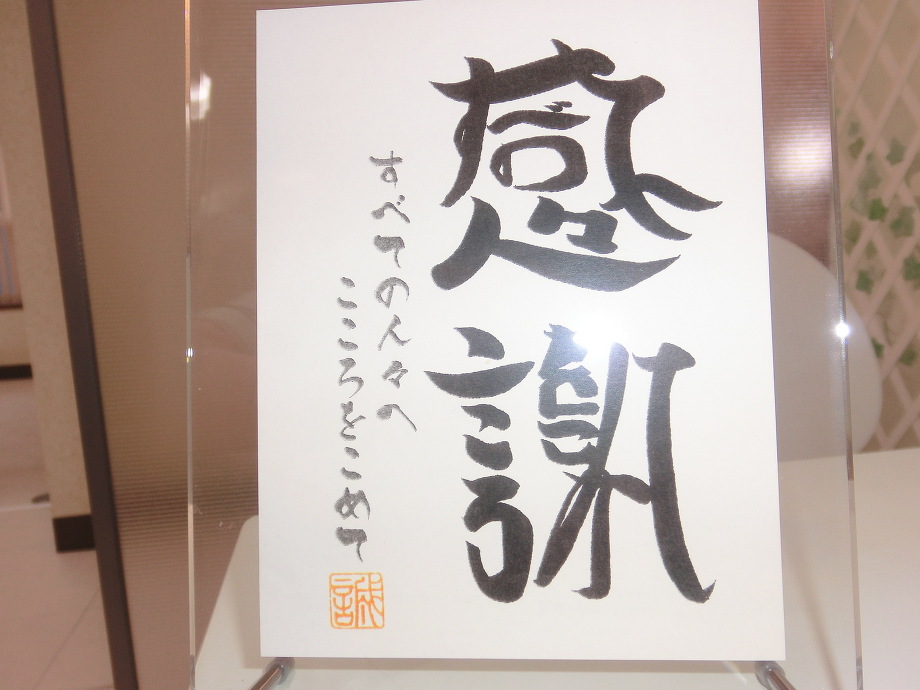 感謝
すべての人々へ
こころをこめて
誠